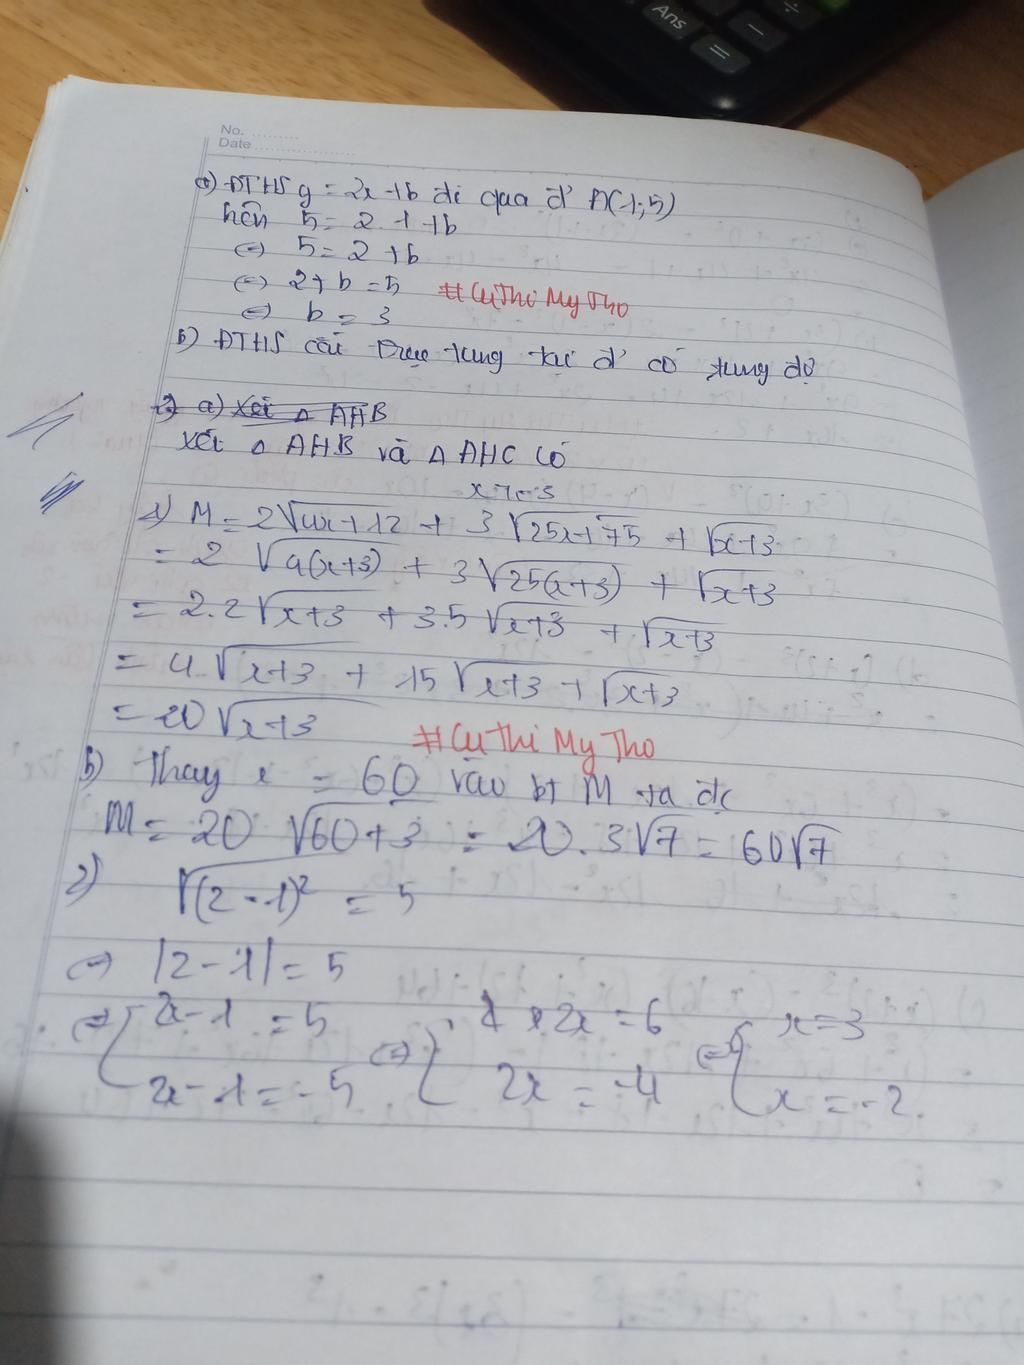 Ans
÷
−
=
No. .........
Date ....................
a) ĐTHS y = 2x + b đi qua đ' A(1;5)
nên 5 = 2.1 + b
<=> 5 = 2 + b
<=> 2 + b = 5
#CụThiMyTho
<=> b = 3
b) ĐTHS cắt trục tung tại đ' có tung độ
2) a) Xét △ AHB
Xét △ AHB và △ AHC có
x >= -3
1) M = 2√4x+12 + 3√25x+75 + √x+3
= 2 √4(x+3) + 3√25(x+3) + √x+3
= 2.2√x+3 + 3.5√x+3 + √x+3
= 4√x+3 + 15√x+3 + √x+3
= 20√x+3
#CụThiMyTho
b) Thay x = 60 vào bt M ta đc
M = 20 √60+3 = 20.3√7 = 60√7
2) √(2-1)² = 5
<=> |2-1| = 5
<=> [ 2x-1 = 5 <=> [ 2x = 6 <=> [ x = 3
2x-1 = -5 2x = -4 x = -2.